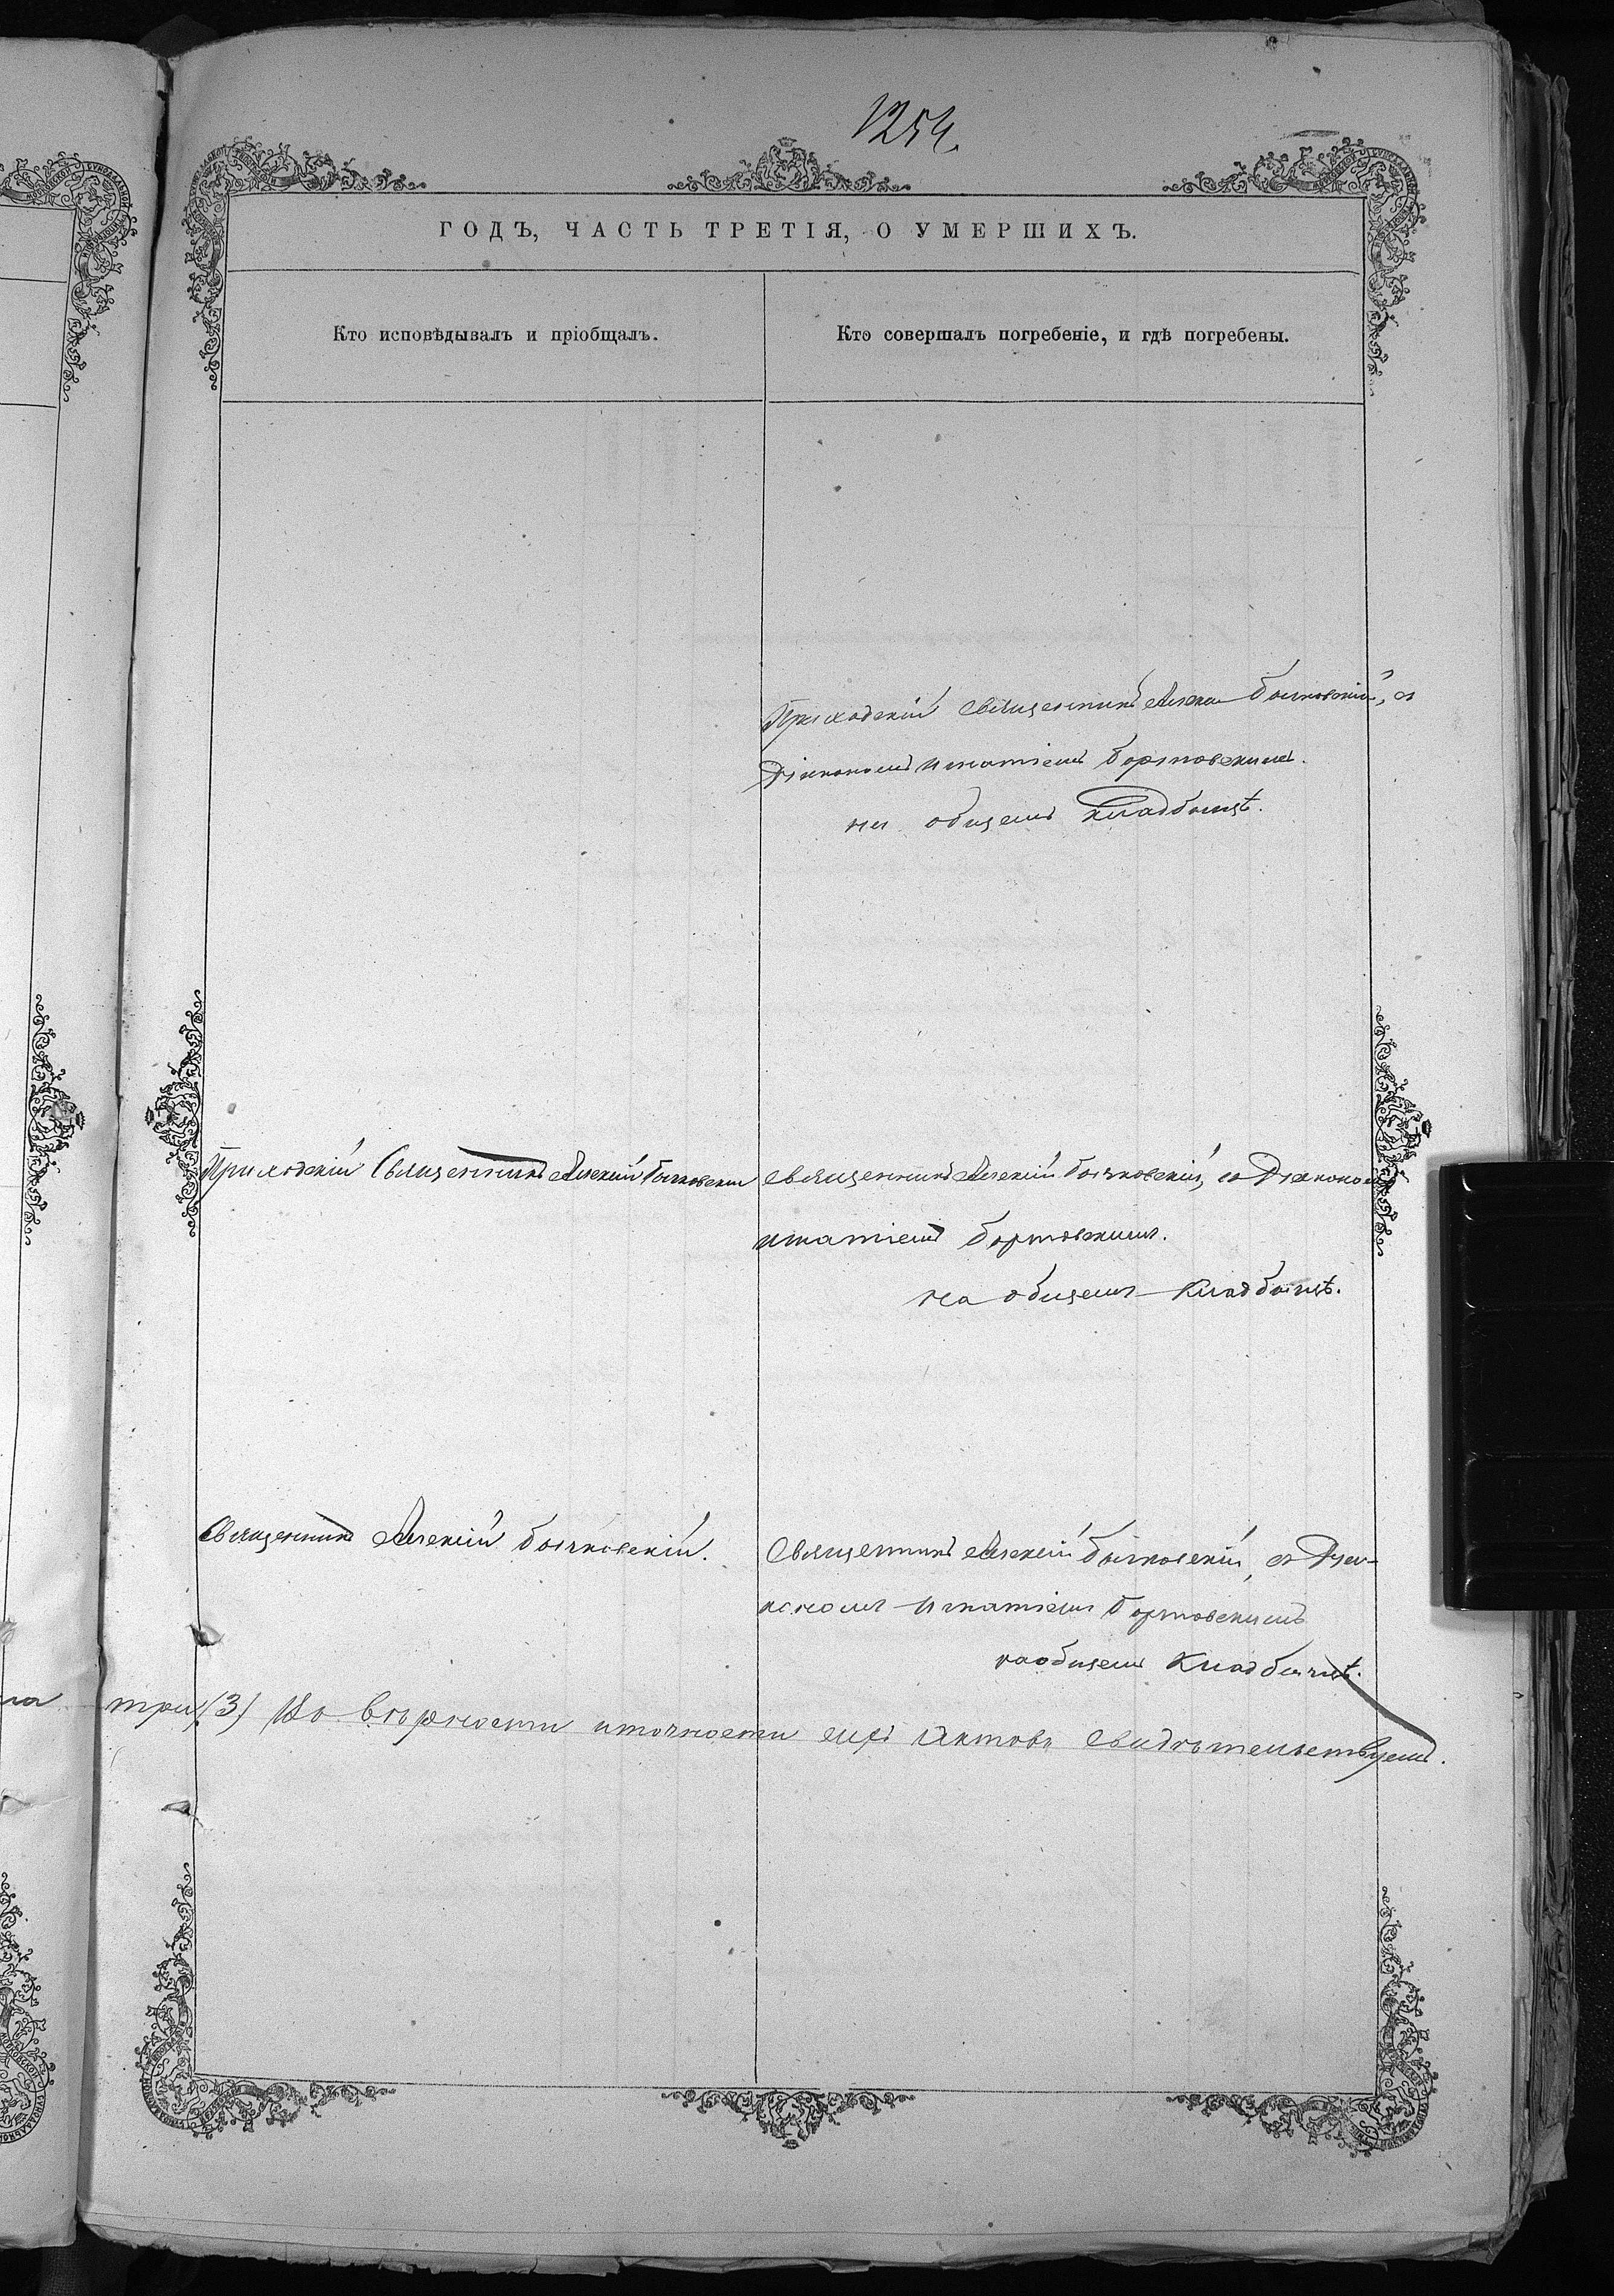 1254.
ГОДЪ, ЧАСТЬ ТРЕТІЯ, О УМЕРШИХЪ.
Кто исповѣдывалъ и пріобщалъ.
Кто совершалъ погребеніе, и гдѣ погребены.
Приходскій Священникъ Бычковскій, съ
Діакономъ Игнатіемъ Бортовскимъ.
на общемъ Кладбищѣ.
Приходскій Священникъ Алексій Бычковскій
Священникъ Алексій Бычковскій, съ Діакономъ
Игнатіемъ Бортовскимъ.
на общемъ Кладбищѣ.
Священникъ Алексій Бычковскій.
Священникъ Алексій Бычковскій, съ Діа-
кономъ Игнатіемъ Бортовскимъ
на общемъ Кладбищѣ.
три (3) Въ вѣрности и точности сихъ Актовъ свидѣтельствуемъ.